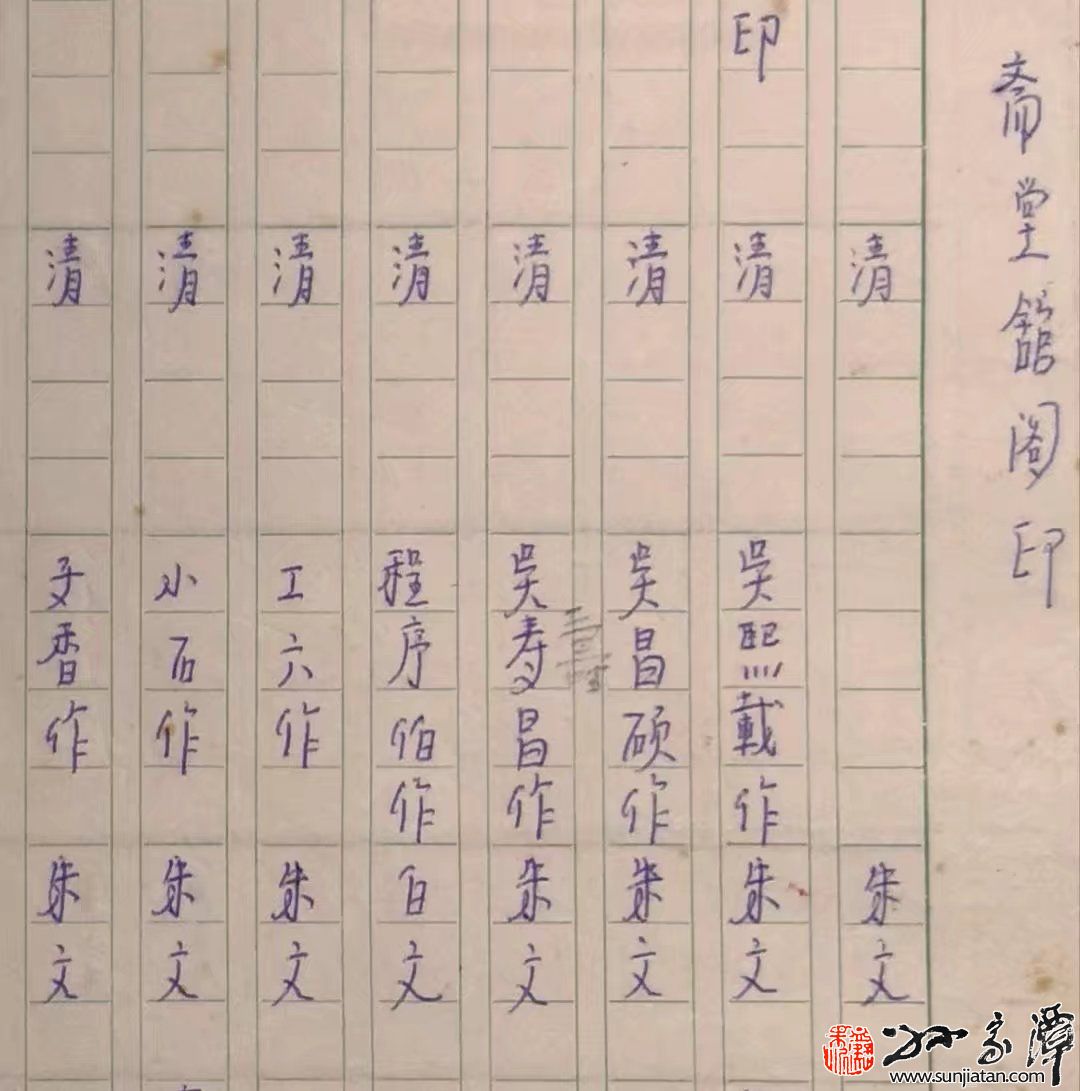 斋堂舘阁印
清 朱文
印 清 吴熙載作 朱文
清 吴昌硕作 朱文
清 吴寿昌作 朱文
清 程序伯作 白文
清 工六作 朱文
清 小石作 朱文
清 子香作 朱文
孙家潭
www.sunjiatan.com